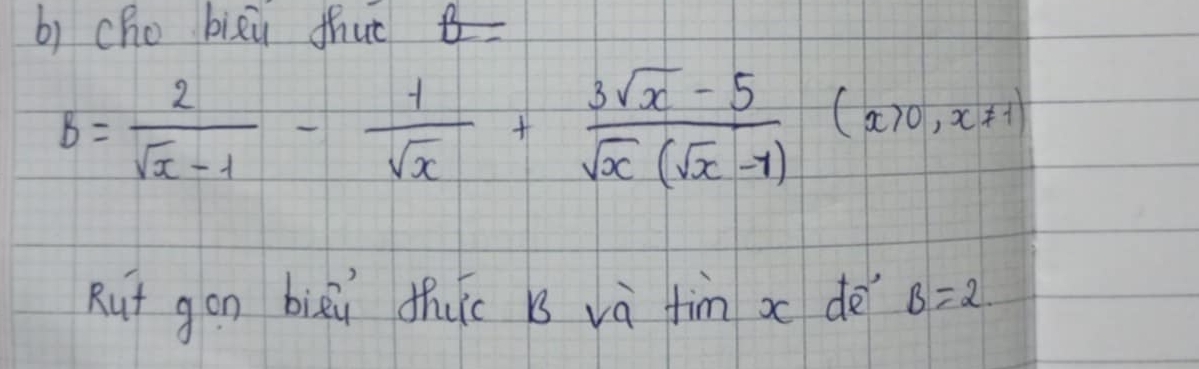 b) Cho biểu thức B=
B = 2/(√x - 1) - 1/√x + (3√x - 5)/(√x (√x - 1)) (x>0, x≠1)
Rút gọn biểu thức B và tìm x để B=2.